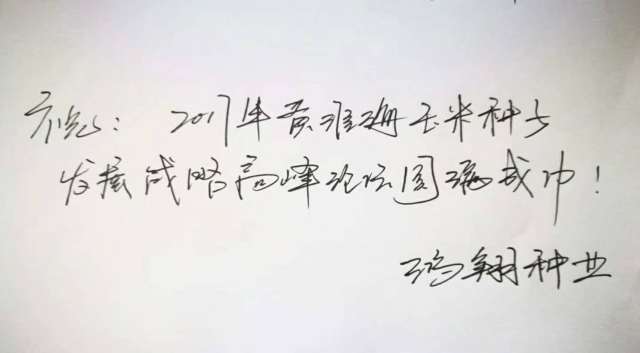 预祝：2017年黄淮海玉米种子
发展战略高峰论坛圆满成功！
鸿翔种业